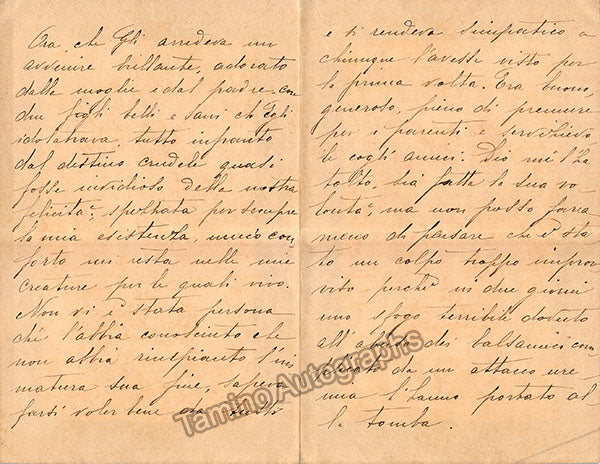 Ora, che Gli arrideva un
avvenire brillante, adorato
dalla moglie e dal padre con
due figli belli e sani ch'Egli
idolatrava, tutto infranto
dal destino crudele quasi
fosse invidioso della nostra
felicità, spezzata per sempre
la mia esistenza, unico con-
forto mi resta nelle mie
creature per le quali vivo.
Non vi è stata persona
che l'abbia conosciuto che
non abbia rimpianto l'im
matura sua fine, sapeva
farsi voler bene da tutti
e si rendeva simpatico a
chiunque l'avesse visto per
la prima volta. Era buono,
generoso, pieno di premure
per i parenti e servizievo
le cogli amici. Dio me l'ha
tolto, sia fatta la sua vo-
lontà, ma non posso fare a
meno di pensare che è sta
to un colpo troppo improv
viso perchè in due giorni
uno sfogo terribile dovuto
all'abuso dei balsamici com
plicato da un attacco ure-
mia l'hanno portato al
la tomba.
Tamino Autographs